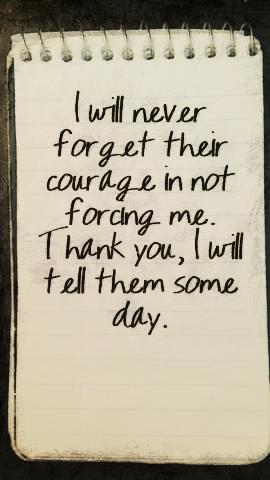 I will never
forget their
courage in not
forcing me.
Thank you, I will
tell them some
day.